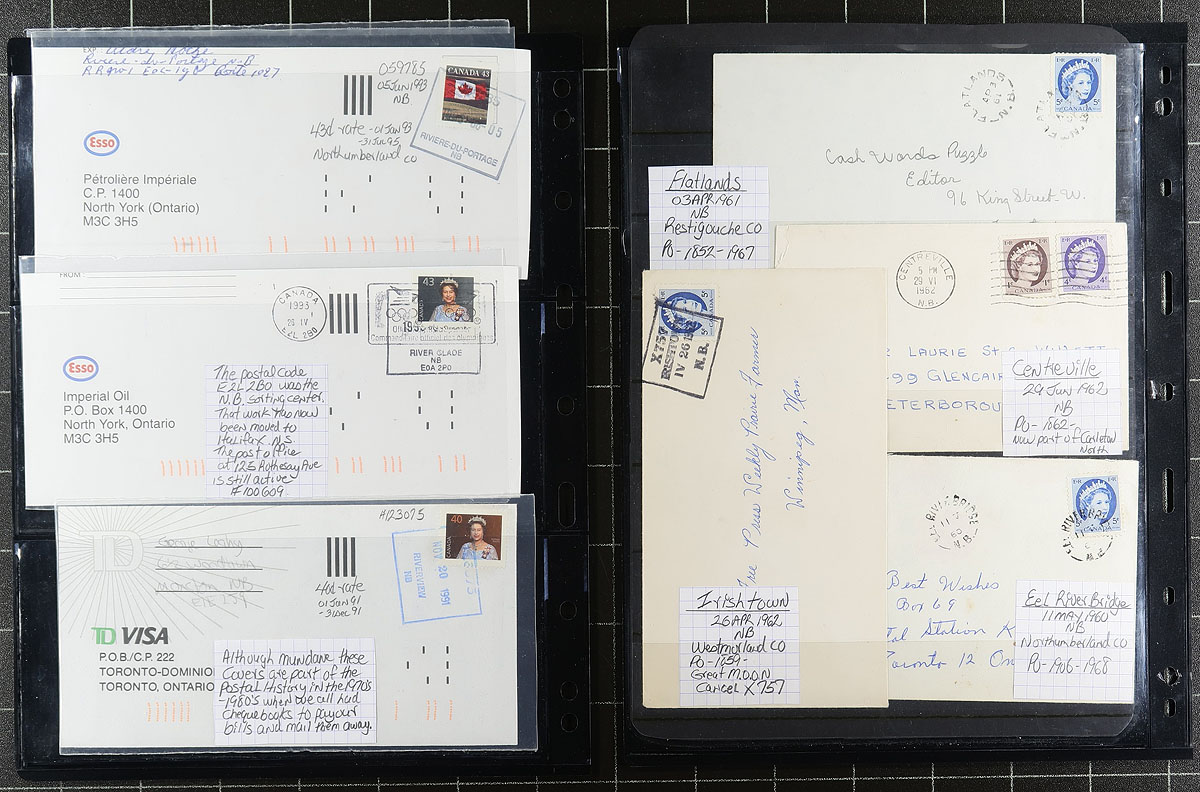 EXP: Aldre Roche
Riviere-du-Portage N-B
RR#1 E0C-1Y0
059785
05JUN1993
NB
43¢ rate - 01 Jan 93
- 31 Jul 95
Northumberland CO
CANADA 43
RIVIERE-DU-PORTAGE
NB
Esso
Pétrolière Impériale
C.P. 1400
North York (Ontario)
M3C 3H5
FROM:
CANADA
1993
26 IV
E2L 2B0
43
CANADA
RIVER GLADE
NB
E0A 2P0
Esso
Imperial Oil
P.O. Box 1400
North York, Ontario
M3C 3H5
The postal code
E2L 2B0 was the
N.B. sorting center.
That work has now
been moved to
Halifax. N.S.
The post office
at 125 Rothesay Ave
is still active
#100609
#123075
TD
George
Moncton NB
40
CANADA
NOV 20 1991
RIVERVIEW
NB
40¢ rate
01 Jan 91
- 31 Dec 91
TD VISA
P.O.B./C.P. 222
TORONTO-DOMINIO
TORONTO, ONTARIO
Although mundane these
Covers are part of the
Postal History in the 1970's
-1980's when we all had
chequebooks to pay our
bills and mail them away.
FLATLANDS
AP 3
61
N.B.
5¢
CANADA
Cash Words Puzzle
Editor
96 King Street W.
Flatlands
03APR1961
NB
Restigouche CO
PO-1852-1967
CENTREVILLE
5 PM
29 VI
1962
N.B.
CANADA
CANADA
LAURIE ST
99 GLENCAIR
ETERBOROU
Centreville
29 Jun 1962
NB
PO-1862-
now part of Carleton
North
X757
IV 26
N.B.
Free Press Weekly Prairie Farmer
Winnipeg, Man.
Irishtown
26 APR 1962
NB
Westmorland CO
PO-1859-
Great M.O.O.N
Cancel X757
EEL RIVER BRIDGE
11 V
60
N.B.
5¢
CANADA
Best Wishes
Box 69
Station K
Toronto 12 On
Eel River Bridge
11 MAY 1960
NB
Northumberland CO
PO-1906-1968